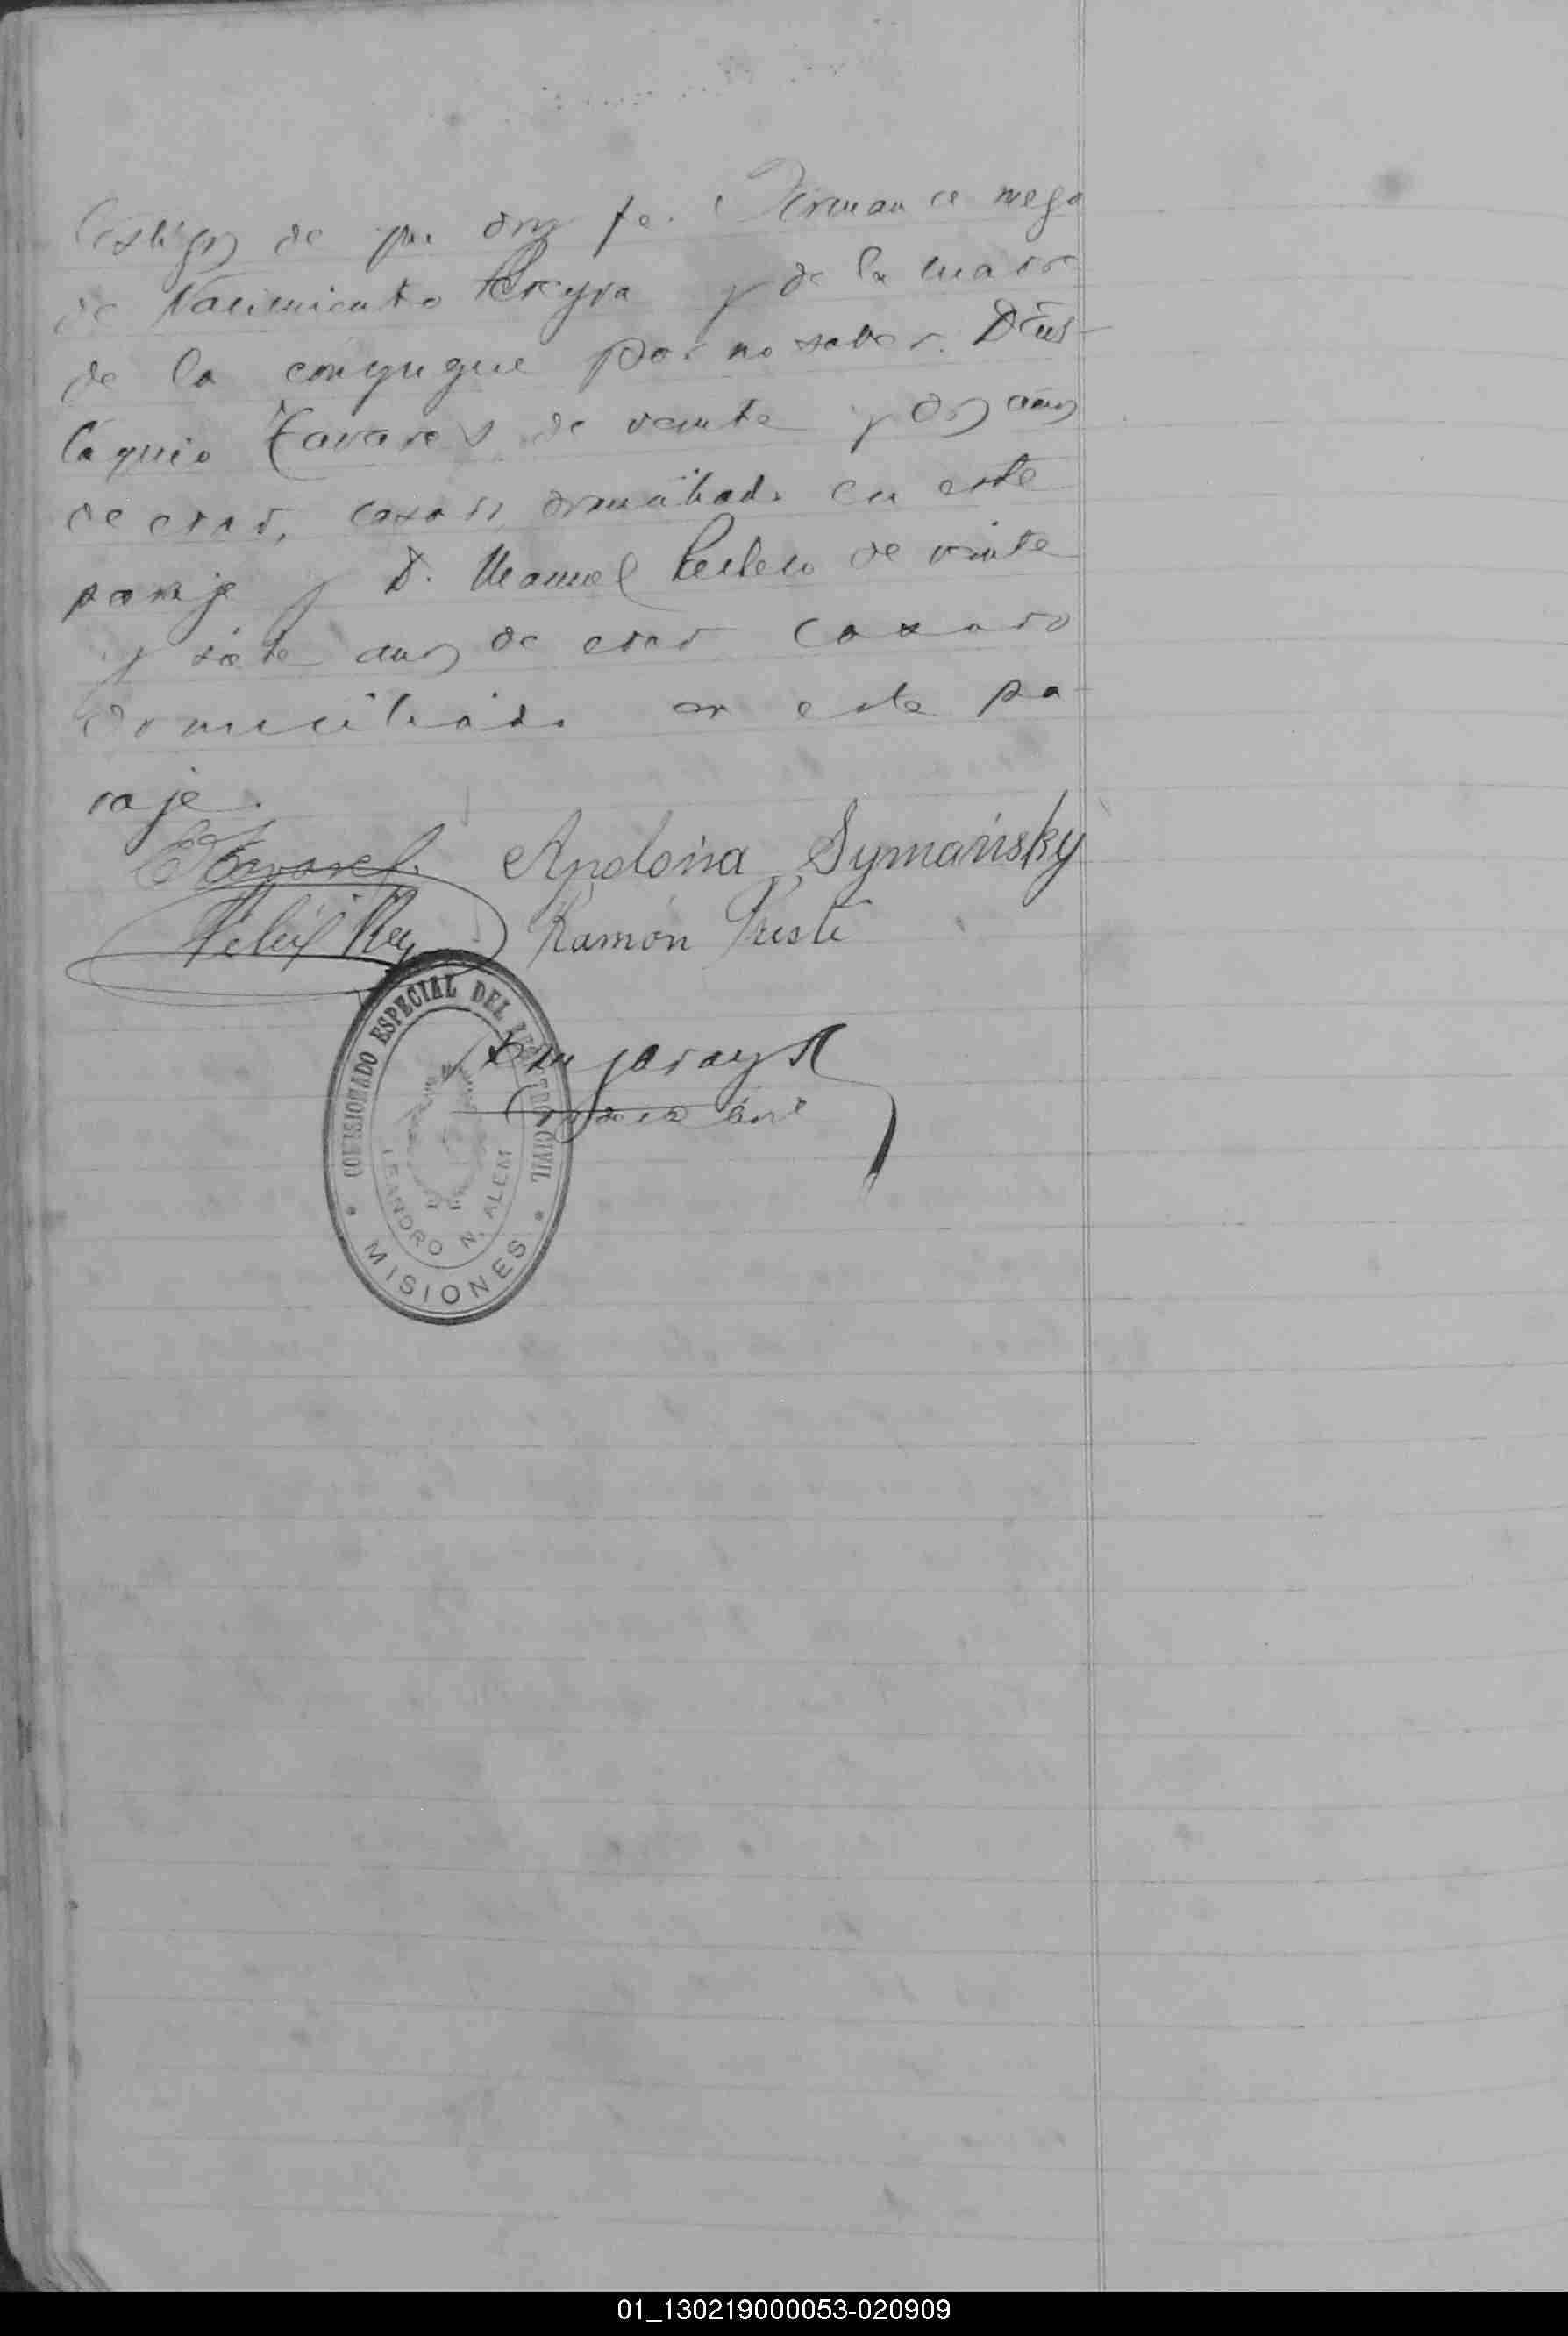 testigos de que doy fe. Firman a ruego
de Nacimiento Pereyra y de la madre
de la conyugue por no saber. D Eus-
taquio Tavares de veinte y dos años
de edad, casado, domiciliado en este
paraje y D. Manuel de veinte
y siete años de edad casado
domiciliado en este pa-
raje.
ETavares. Apolonia Symañsky
Félix Rey Ramón Preste
COMISIONADO ESPECIAL DEL REGISTRO CIVIL
LEANDRO N. ALEM
* MISIONES *
01_130219000053-020909